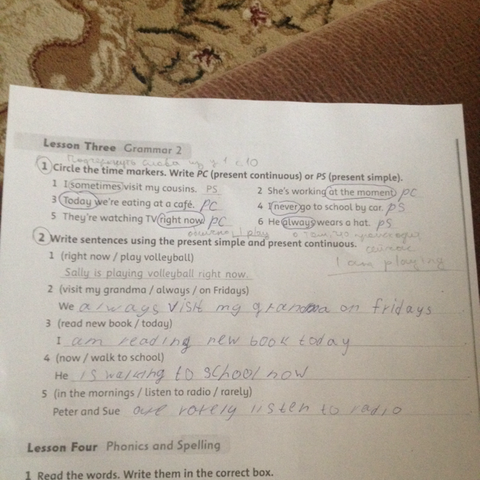 Lesson Three Grammar 2
Подчеркнуть слова из у 1 с 10
1 Circle the time markers. Write PC (present continuous) or PS (present simple).
1 I sometimes visit my cousins. PS
2 She's working at the moment. PC
3 Today we're eating at a café. PC
4 I never go to school by car. PS
5 They're watching TV right now. PC
6 He always wears a hat. PS
обычно I play
о том, что происходит
сейчас
2 Write sentences using the present simple and present continuous.
I am playing
1 (right now / play volleyball)
Sally is playing volleyball right now.
2 (visit my grandma / always / on Fridays)
We always visit my grandma on fridays
3 (read new book / today)
I am reading new book today
4 (now / walk to school)
He is walking to school now
5 (in the mornings / listen to radio / rarely)
Peter and Sue are rarely listen to radio
Lesson Four Phonics and Spelling
1 Read the words. Write them in the correct box.